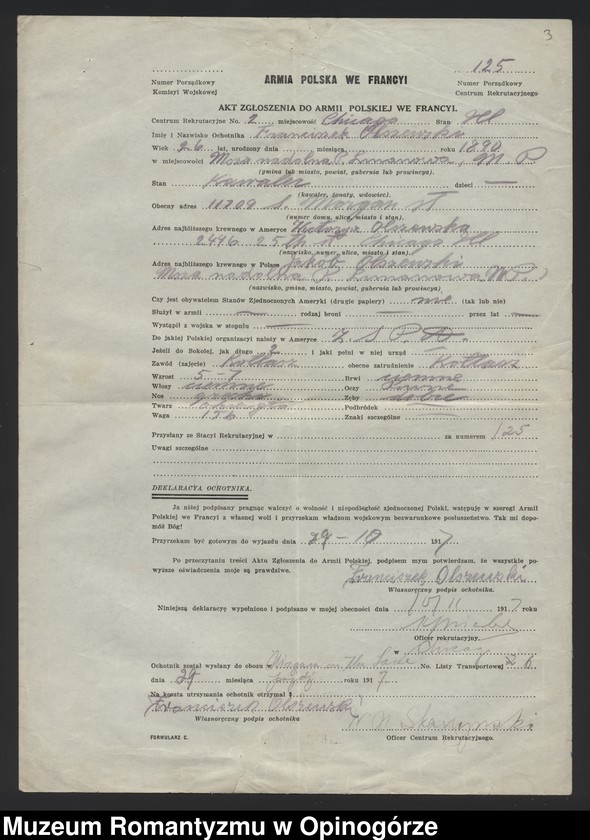 3
125
ARMIA POLSKA WE FRANCYI
Numer Porządkowy
Komisyi Wojskowej
Numer Porządkowy
Centrum Rekrutacyjnego
AKT ZGŁOSZENIA DO ARMII POLSKIEJ WE FRANCYI.
Centrum Rekrutacyjne No. 2 miejscowość Chicago Stan Ill
Imię i Nazwisko Ochotnika Franciszek Olszewski
Wiek 26 lat, urodzony dnia miesiąca roku 1890
w miejscowości Msza nadolna P. Limanowa, M. P
(gmina lub miasto, powiat, gubernia lub prowincya).
Stan Kawaler dzieci —
(kawaler, żonaty, wdowiec).
Obecny adres 11209 S. Morgan St
(numer domu, ulica, miasto i stan).
Adres najbliższego krewnego w Ameryce Olszewska
2446 25th St Chicago Ill
(nazwisko, numer, ulica, miasto i stan).
Adres najbliższego krewnego w Polsce Jakób Olszewski
Msza nadolna P. Limanowa (M.P.)
(nazwisko, gmina, miasto, powiat, gubernia lub prowincya).
Czy jest obywatelem Stanów Zjednoczonych Ameryki (drugie papiery) nie (tak lub nie)
Służył w armii — rodzaj broni — przez lat —
Wystąpił z wojska w stopniu —
Do jakiej Polskiej organizacyi należy w Ameryce Z. S. P. A.
Jeżeli do Sokołej, jak długo 2 i jaki pełni w niej urząd —
Zawód (zajęcie) Kotlarz obecne zatrudnienie Kotlarz
Wzrost 5-7 Brwi ciemne
Włosy ciemne Oczy
Nos Zęby dobre
Twarz Podbródek
Waga 156 Znaki szczególne
Przysłany ze Stacyi Rekrutacyjnej w za numerem 125
Uwagi szczególne
DEKLARACYA OCHOTNIKA.
Ja niżej podpisany pragnąc walczyć o wolność i niepodległość zjednoczonej Polski, wstępuję w szeregi Armii
Polskiej we Francyi z własnej woli i przyrzekam władzom wojskowym bezwarunkowe posłuszeństwo. Tak mi dopo-
móż Bóg!
Przyrzekam być gotowym do wyjazdu dnia 29-10 1917
Po przeczytaniu treści Aktu Zgłoszenia do Armii Polskiej, podpisem mym potwierdzam, że wszystkie po-
wyższe oświadczenia moje są prawdziwe.
Franciszek Olszewski
Własnoręczny podpis ochotnika.
Niniejszą deklaracyę wypełniono i podpisano w mojej obecności dnia 1917 roku
Oficer rekrutacyjny.
w Chicago
Ochotnik został wysłany do obozu w Niagara on the Lake No. Listy Transportowej 6
dnia 29 miesiąca roku 1917
Na koszta utrzymania ochotnik otrzymał $
Franciszek Olszewski
Własnoręczny podpis ochotnika
Oficer Centrum Rekrutacyjnego.
FORMULARZ C.
Muzeum Romantyzmu w Opinogórze